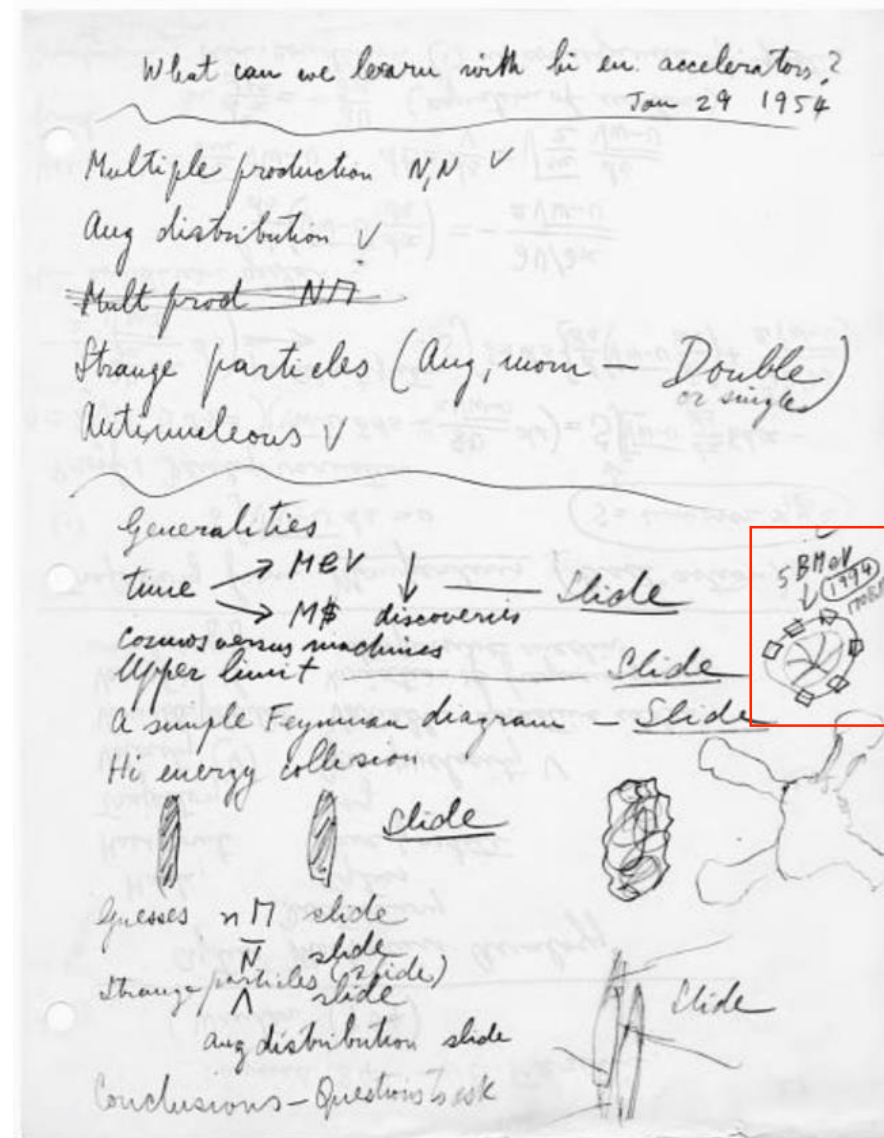 What can we learn with hi en. accelerators?
Jan 29 1954
Multiple production N,N V
Ang distribution V
Mult prod NΠ
Strange particles (Ang, mom — Double
or single)
Antinucleons V
Generalities
time → MeV ↓ — Slide
→ M$ discoveries
5 BMeV
1994
Cosmos versus machines
Upper limit — Slide
A simple Feynman diagram — Slide
Hi energy collision
Slide
Guesses nΠ slide
N̅ slide
Strange particles (slide)
Λ slide
Slide
ang distribution slide
Conclusions — Questions to ask